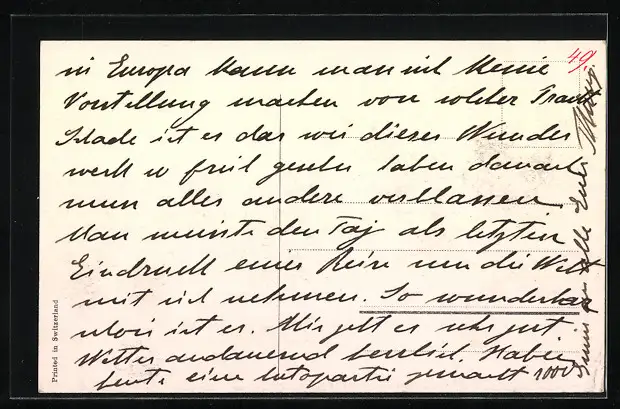 49.
in Europa kann man sich keine
Vorstellung machen von solcher Pracht
Schade ist es das wir dieses Wunder
werk so früh gesehn haben danach
muss alles andere verblassen
Man müsste den Taj als letzten
Eindruck einer Reise um die Welt
mit sich nehmen. So wunderbar
schön ist es. Mir geht es sehr gut
Wetter andauernd herrlich. Haben
heute eine Autopartie gemacht 1000
alle Eure
Printed in Switzerland